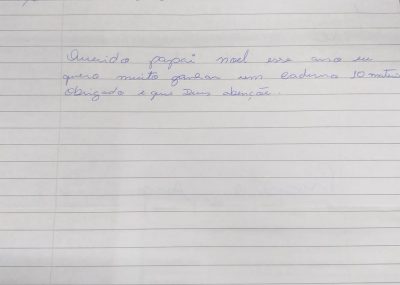 Querido papai noel esse ano eu
quero muito ganhar um caderno 10 materi
obrigado e que Deus abenção.